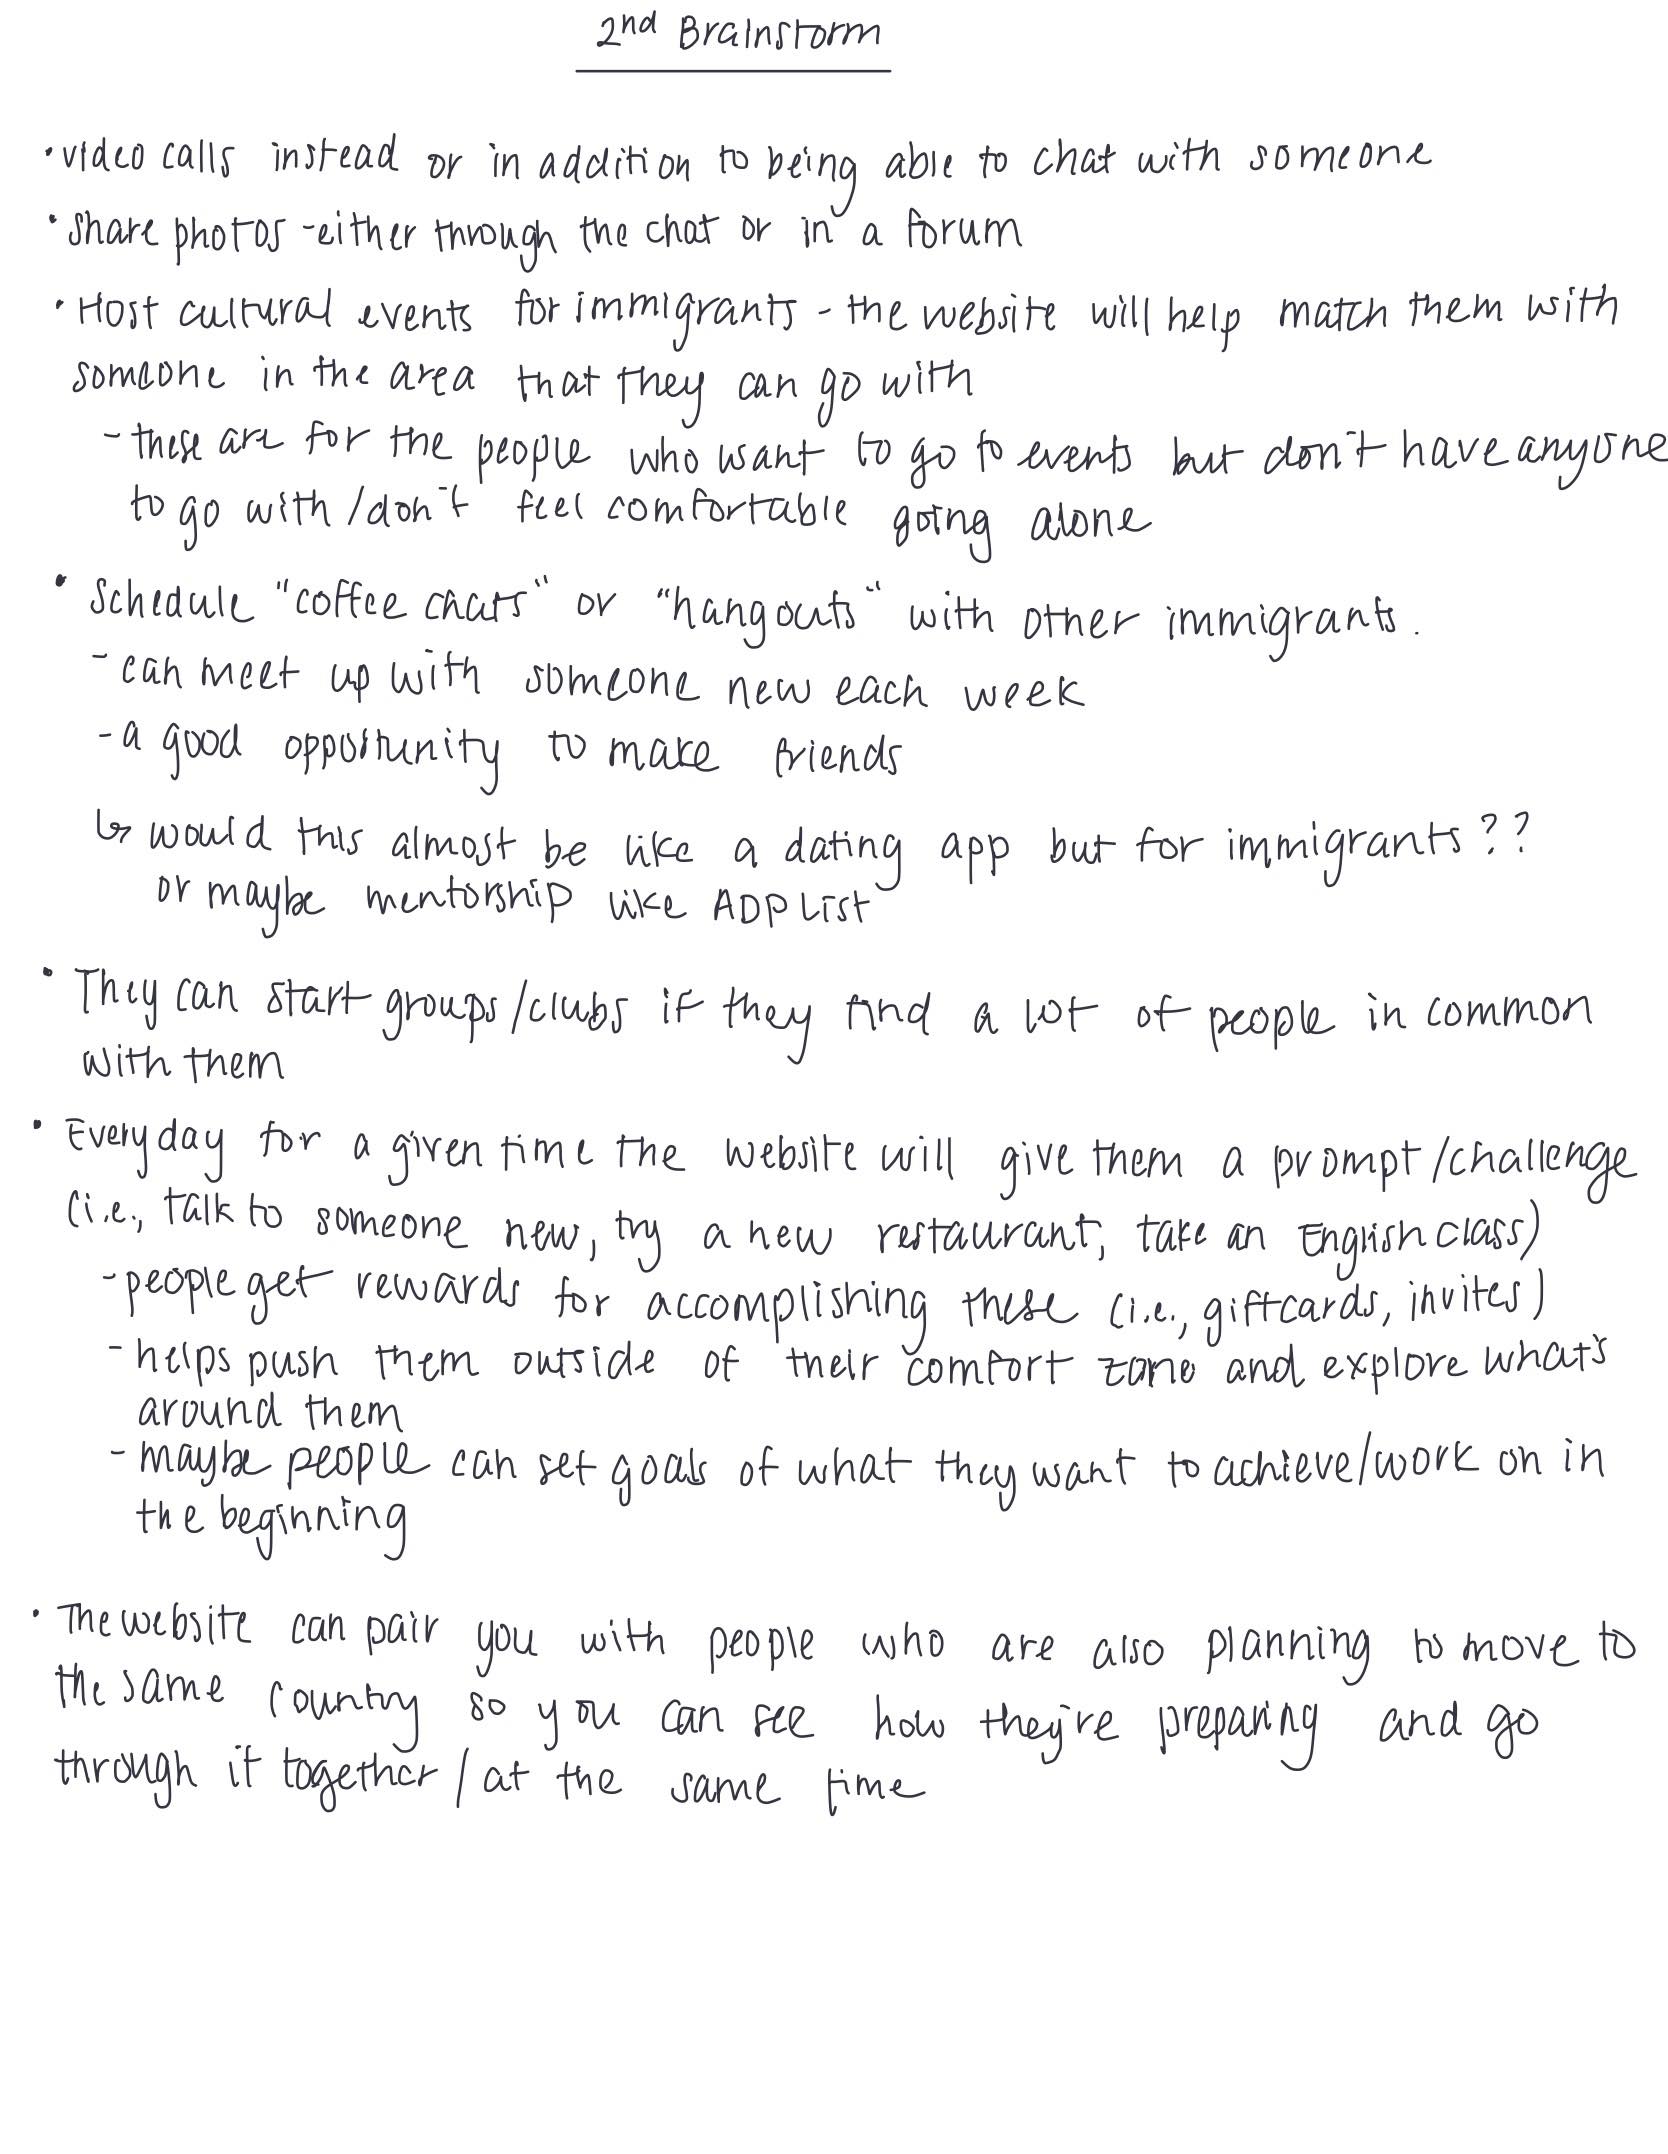 2nd Brainstorm
• video calls instead or in addition to being able to chat with someone
• share photos - either through the chat or in a forum
• Host cultural events for immigrants - the website will help match them with
someone in the area that they can go with
- these are for the people who want to go to events but don't have anyone
to go with/don't feel comfortable going alone
• Schedule "coffee chats" or "hangouts" with other immigrants.
- can meet up with someone new each week
- a good opportunity to make friends
↳ would this almost be like a dating app but for immigrants??
or maybe mentorship like ADPList
• They can start groups/clubs if they find a lot of people in common
with them
• Everyday for a given time the website will give them a prompt/challenge
(i.e., talk to someone new, try a new restaurant, take an English class)
- people get rewards for accomplishing these (i.e., giftcards, invites)
- helps push them outside of their comfort zone and explore what's
around them
- maybe people can set goals of what they want to achieve/work on in
the beginning
• The website can pair you with people who are also planning to move to
the same country so you can see how they're preparing and go
through it together/at the same time